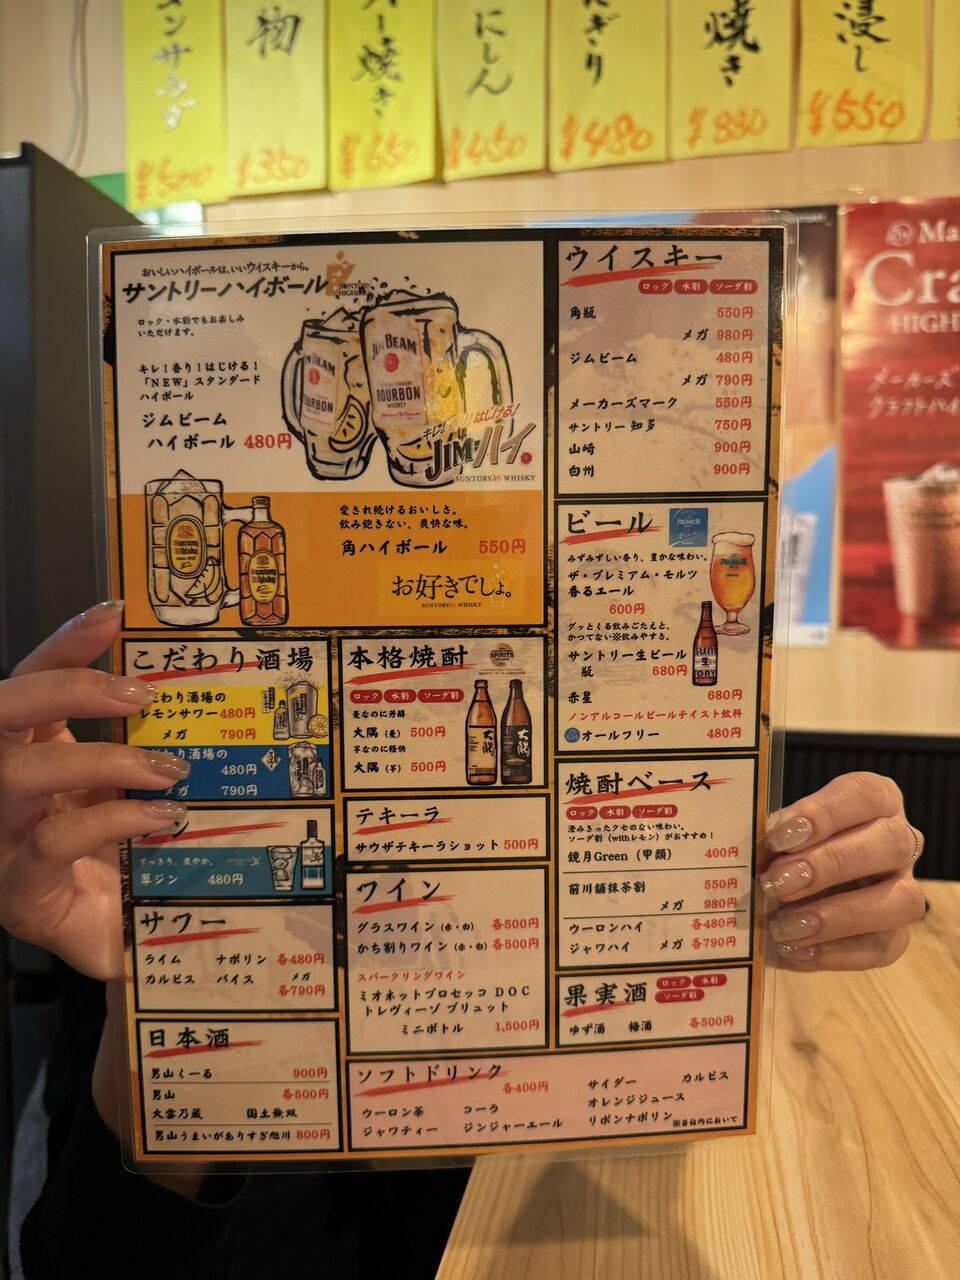 ンサラダ
¥500
物
¥350
バター焼き
¥650
にしん
¥450
にぎり
¥480
焼き
¥880
浸し
¥550
おいしいハイボールは、いいウイスキーから。
サントリーハイボール
ロック・水割でもお楽しみ
いただけます。
キレ！香り！はじける！
「NEW」スタンダード
ハイボール
ジムビーム
ハイボール 480円
JIM BEAM
BOURBON
JIM BEAM
BOURBON
WHISKEY
キレ！香り！はじける！
JIMハイ。
SUNTORY WHISKY
Suntory
Whisky
Suntory
Whisky
愛され続けるおいしさ。
飲み飽きない、爽快な味。
角ハイボール 550円
お好きでしょ。
SUNTORY WHISKY
ウイスキー
ロック 水割 ソーダ割
角瓶 550円
メガ 980円
ジムビーム 480円
メガ 790円
メーカーズマーク 550円
サントリー 知多 750円
山崎 900円
白州 900円
ビール
PREMIUM
みずみずしい香り、豊かな味わい。
ザ・プレミアム・モルツ
香るエール
600円
グッとくる飲みごたえと、
かつてない飲みやすさ。
サントリー生ビール
瓶 680円
赤星 680円
ノンアルコールビールテイスト飲料
オールフリー 480円
こだわり酒場
だわり酒場の
レモンサワー 480円
メガ 790円
だわり酒場の
480円
メガ 790円
本格焼酎
SPIRITS
ロック 水割 ソーダ割
麦なのに芳醇
大隅（麦） 500円
芋なのに軽快
大隅（芋） 500円
焼酎ベース
ロック 水割 ソーダ割
澄みきったクセのない味わい。
ソーダ割（withレモン）がおすすめ！
鏡月Green（甲類） 400円
前川舗抹茶割 550円
メガ 980円
ウーロンハイ 各480円
ジャワハイ メガ 各790円
ジン
すっきり、爽やか。
翠ジン 480円
テキーラ
サウザテキーラショット 500円
サワー
ライム ナポリン 各480円
カルピス バイス メガ
各790円
ワイン
グラスワイン（赤・白） 各500円
かち割りワイン（赤・白） 各500円
スパークリングワイン
ミオネットプロセッコ DOC
トレヴィーゾ ブリュット
ミニボトル 1,500円
果実酒
ロック 水割
ソーダ割
ゆず酒 梅酒 各500円
日本酒
男山くーる 900円
男山 各500円
大雪乃蔵 国士無双
男山うまいがありすぎ旭川 800円
ソフトドリンク
各400円
ウーロン茶 コーラ
ジャワティー ジンジャーエール
サイダー カルピス
オレンジジュース
リボンナポリン ※当社内において
Ma
Cra
HIGH
メーカーズ
クラフトハイ